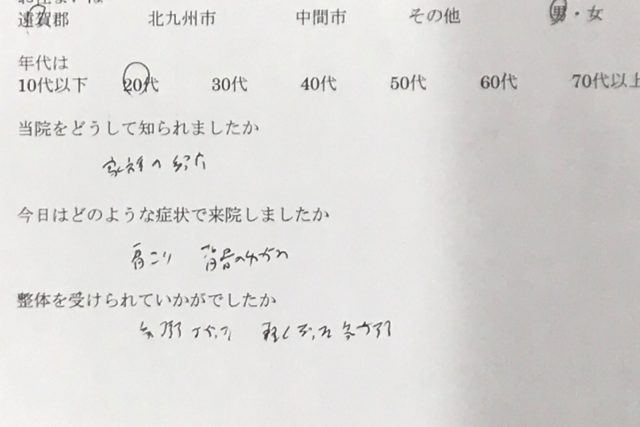 遠賀郡 北九州市 中間市 その他 男・女
年代は
10代以下 20代 30代 40代 50代 60代 70代以上
当院をどうして知られましたか
家族の紹介
今日はどのような症状で来院しましたか
肩こり 背骨のゆがみ
整体を受けられていかがでしたか
気持よかった 軽くなった気がする